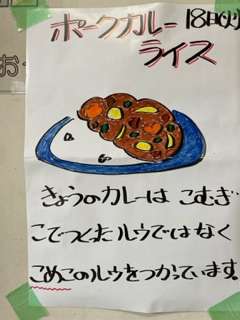 ポークカレー 18日(火)
ライス
お
きょうのカレーは こむぎ
こでつくったルウではなく
こめこのルウをつかっています。